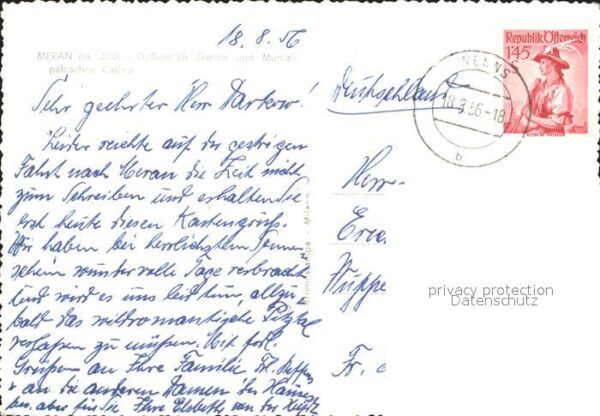 18.8.56
MERAN (m. 320) - Oeffentlich Garten und Munizi-
pabischen Casino
Sehr geehrter Herr Darkow!
Leider reichte auf der gestrigen
Fahrt nach Meran die Zeit nicht
zum Schreiben und erhalten Sie
erst heute diesen Kartengruß.
Wir haben bei herrlichstem Sonnen-
schein wundervolle Tage verbracht
und wird es uns leid tun, allzu-
bald das wildromantische Pitztal
verlassen zu müssen. Mit frdl.
Grüßen an Ihre Familie
+ an die anderen Damen des Hauses
aber für die Ihre Elsbeth von der
Deutschland
Herr
Wuppe
Fr.
Republik Österreich
145
WENNS
18.8.56-18
b
privacy protection
Datenschutz